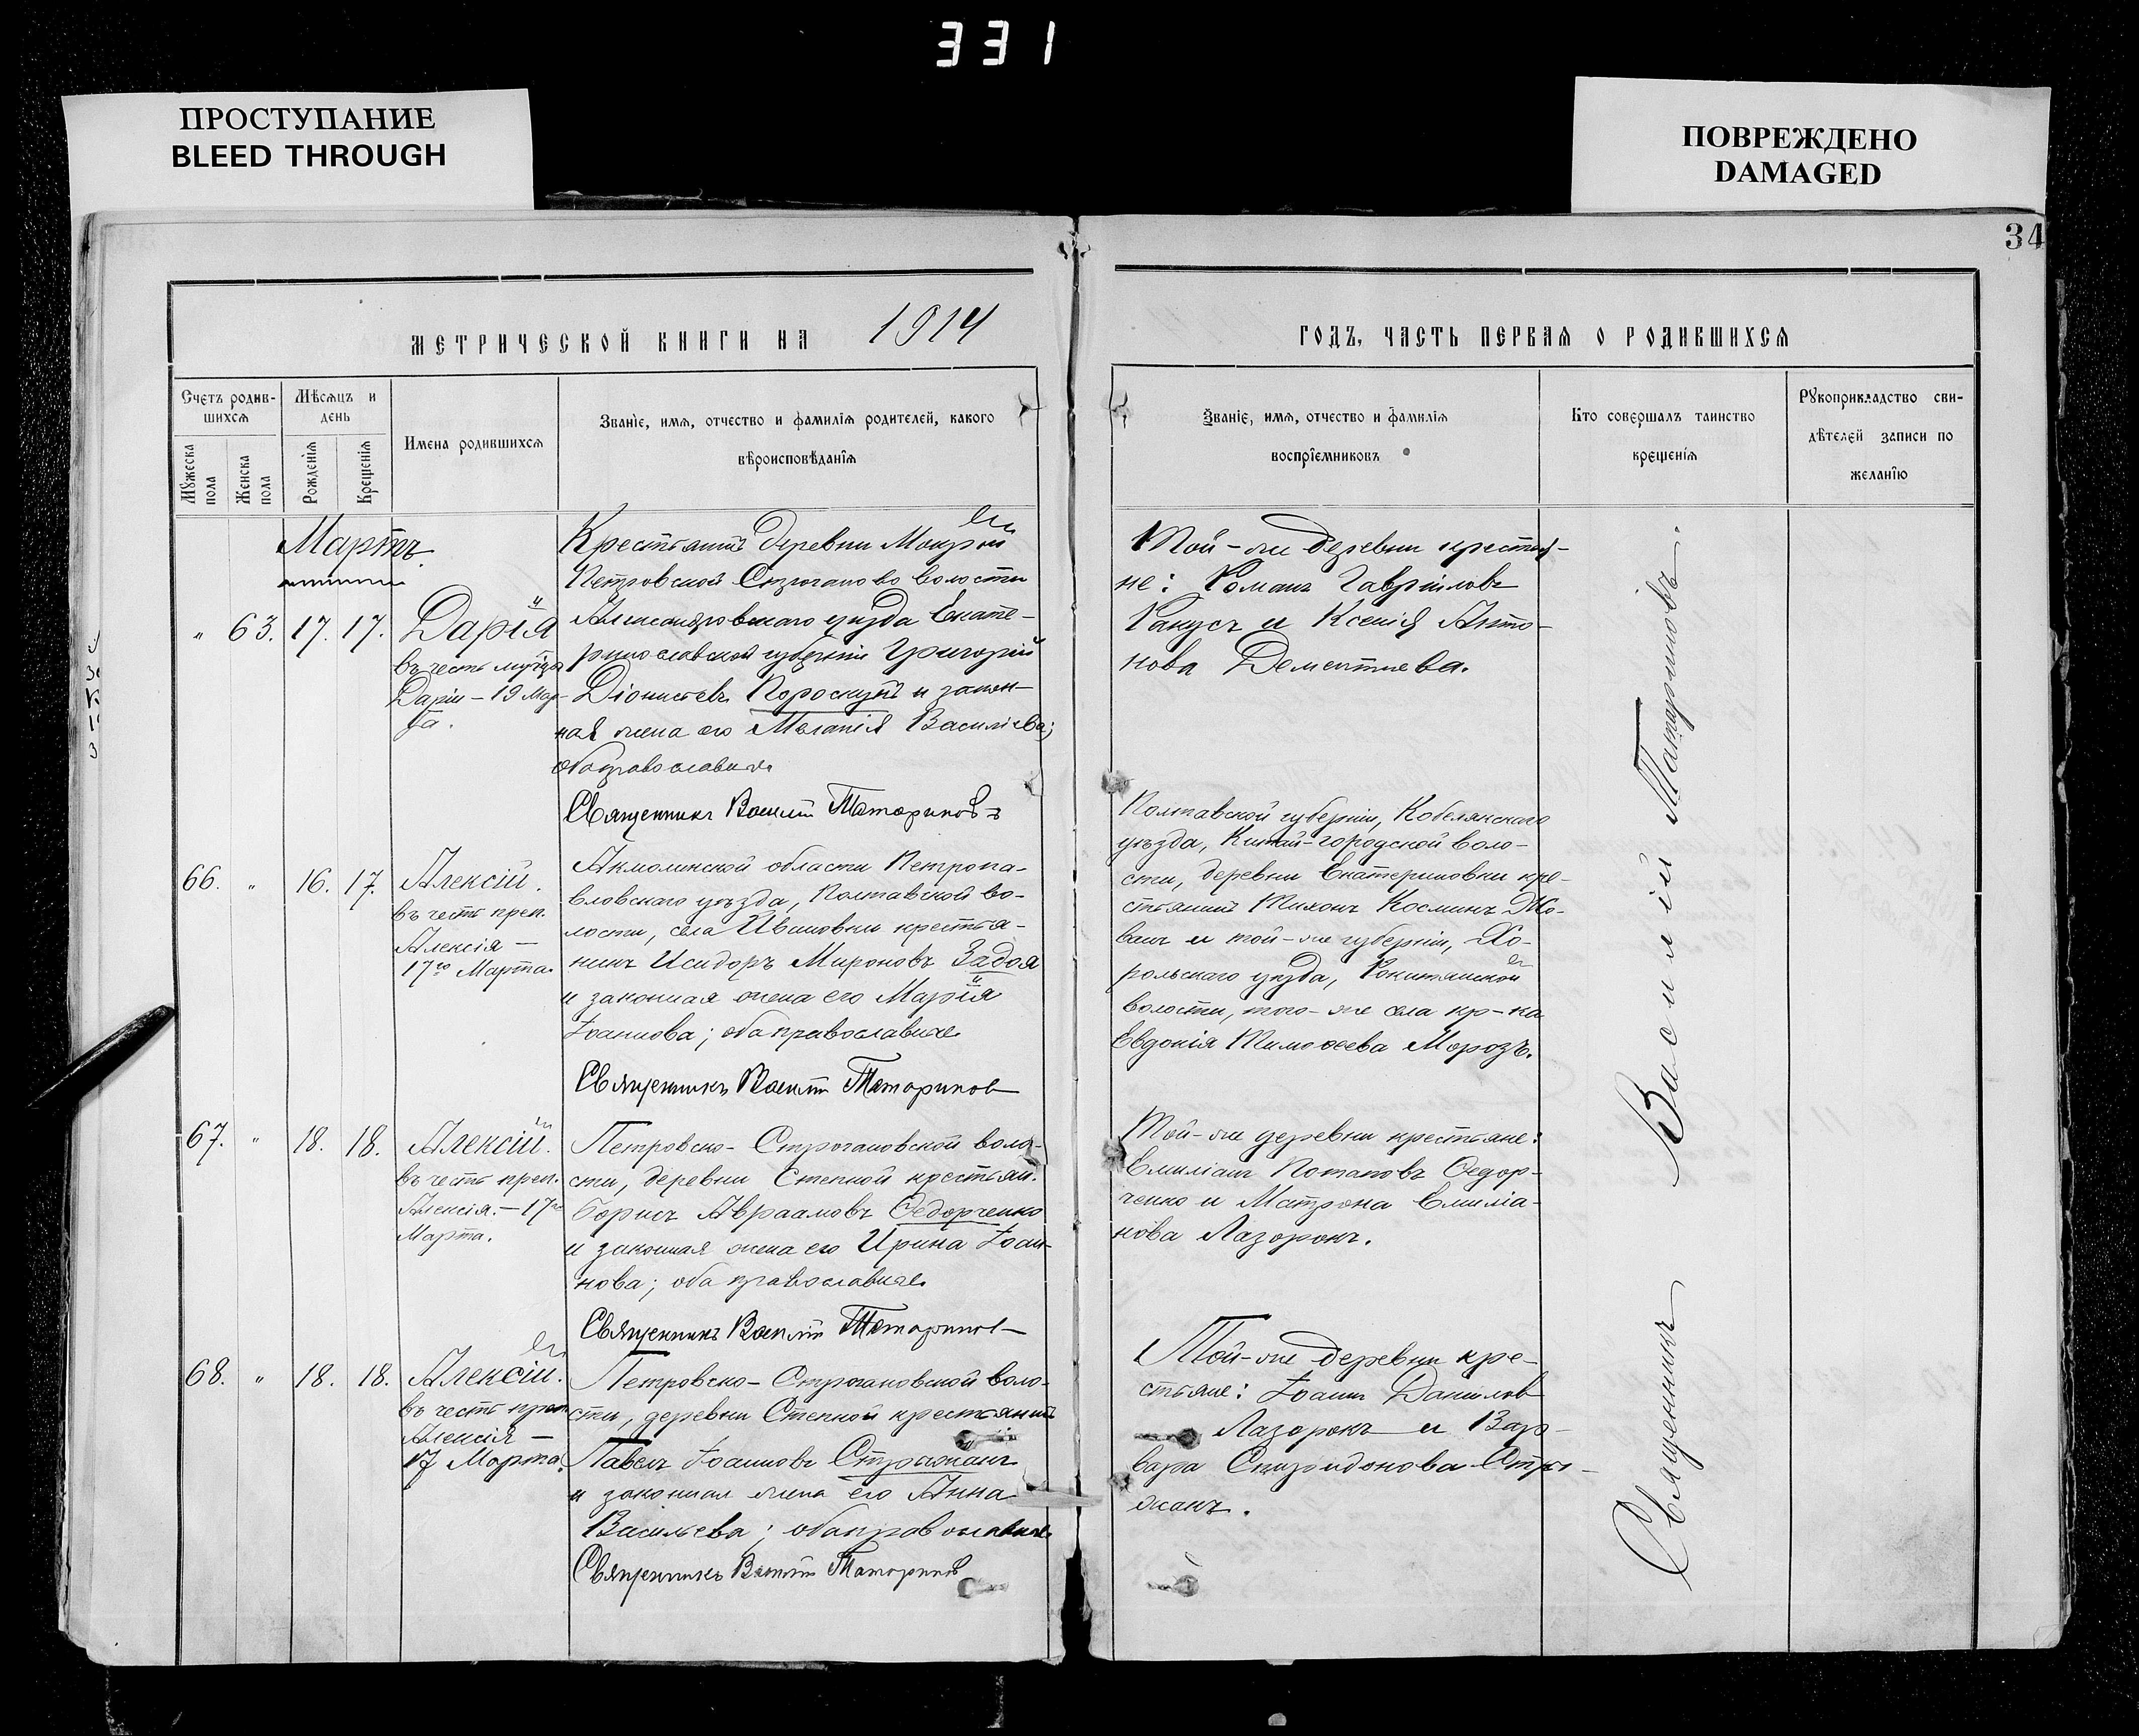 331
ПРОСТУПАНИЕ
BLEED THROUGH
ПОВРЕЖДЕНО
DAMAGED
34
МЕТРИЧЕСКОЙ КНИГИ НА 1914
ГОДЪ, ЧАСТЬ ПЕРВАЯ О РОДИВШИХСЯ
Счетъ родив-
шихся
Мѣсяцъ и
день
Имена родившихся
Званіе, имя, отчество и фамилія родителей, какого
вѣроисповѣданія
Мужеска
пола
Женска
пола
Рожденія
Крещенія
Званіе, имя, отчество и фамилія
воспріемниковъ
Кто совершалъ таинство
крещенія
Рукоприкладство сви-
дѣтелей записи по
желанію
Мартъ.
" 63. 17. 17. Дарія
въ честь муч-цы
Даріи - 19 Мар-
та.
Крестьянинъ деревни Мокрой
Петровской волости
Александровскаго уѣзда Екате-
ринославской губерніи Григорій
Діонисіевъ и закон-
ная жена его Меланія Василіева;
оба православные
Священникъ Василій Татариновъ
Той-же деревни крестья-
не: Романъ Гавріиловъ
Ракусъ и Ксенія Анто-
нова Дементиева.
66. " 16. 17. Алексій.
въ честь преп.
Алексія -
17го Марта.
Акмолинской области Петропа-
вловскаго уѣзда, Полтавской во-
лости, села Ивановки крестья-
нинъ Исидоръ Мироновъ Задоя
и законная жена его Марія
Іоаннова; оба православные
Священникъ Василій Татаринов
Полтавской губерніи, Кобелякскаго
уѣзда, Китай-городской воло-
сти, деревни Екатериновки кре-
стьянинъ Тихонъ Косминъ Жо-
ванъ и той-же губерніи, Хо-
рольскаго уѣзда, Рокитянской
волости, того-же села кр-ка
Евдокія Тимоѳеева Морозъ.
67. " 18. 18. Алексій.
въ честь преп.
Алексія. - 17го
Марта.
Петровско-Строгановской воло-
сти, деревни Степной крестьян.
Борисъ Авраамовъ Ѳедорченко
и законная жена его Ирина Іоан-
нова; оба православные
Священникъ Василій Татаринов
Той-же деревни крестьяне:
Емиліанъ Потаповъ Ѳедор-
ченко и Матрона Емилiа-
нова Лазоронъ.
68. " 18. 18. Алексій.
въ честь преп.
Алексія -
17 Марта.
Петровско-Строгановской воло-
сти, деревни Степной крестьянинъ
Павелъ Іоанновъ Стрижанъ
и законная жена его Анна
Васильева; оба православные
Священникъ Василій Татаринов
Той-же деревни кре-
стьяне: Іоаннъ Данилов
Лазоронъ и Вар-
вара Спиридонова Стри-
жанъ.
Священникъ Василій Татариновъ.